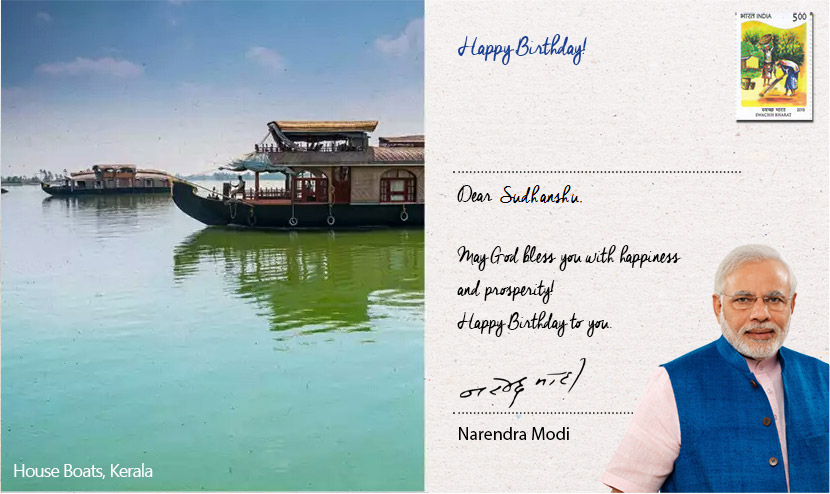 Happy Birthday!
भारत INDIA 500
स्वच्छ भारत 2015
SWACHH BHARAT
Dear Sudhanshu,
May God bless you with happiness
and prosperity!
Happy Birthday to you.
नरेन्द्र मोदी
Narendra Modi
House Boats, Kerala